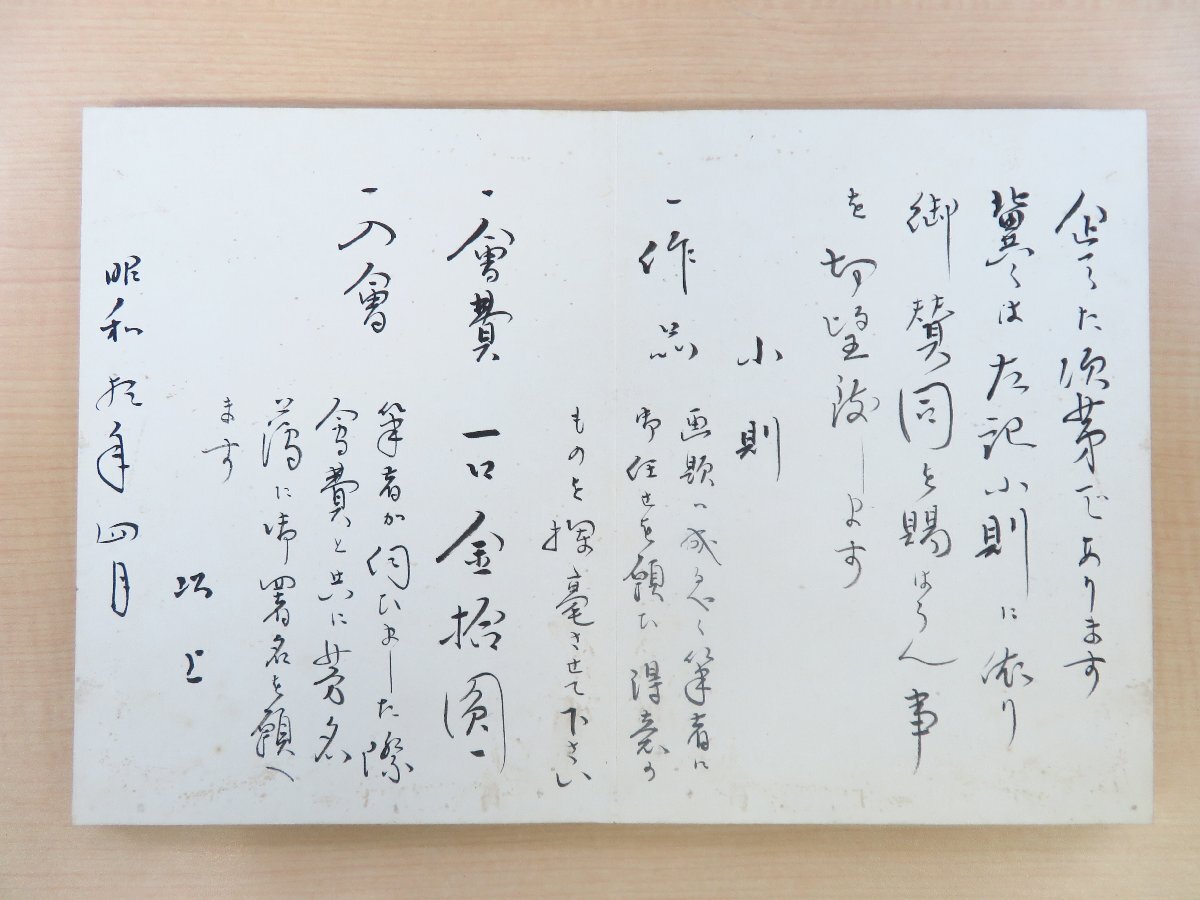 企てた次第であります
冀くは左記小則に依り
御賛同を賜はらん事
を切望致します
小則
一作品
画題は成るべく筆者に
御任せを願ひ得意の
ものを揮毫させて下さい
一會費 一口金拾圓
一入會
筆者が伺ひました際
會費と共に芳名
簿に御署名を願へ
ます
以上
昭和 年四月